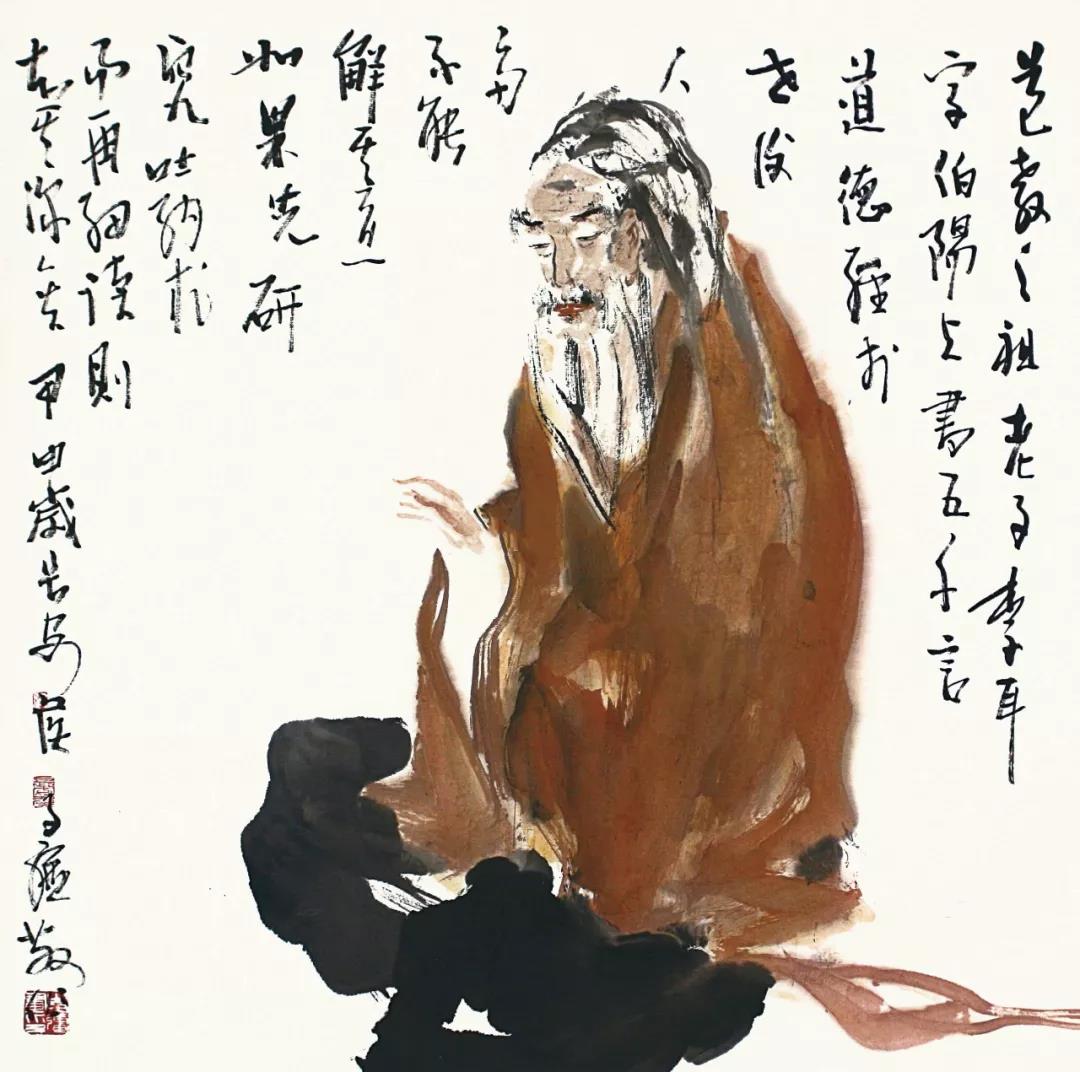 道教之祖老子李耳
字伯陽上書五千言
道德經於
世後
人
多
不能
解其意
如果先研
究吐納术
而再細读則
知其深矣甲申歲長安侯